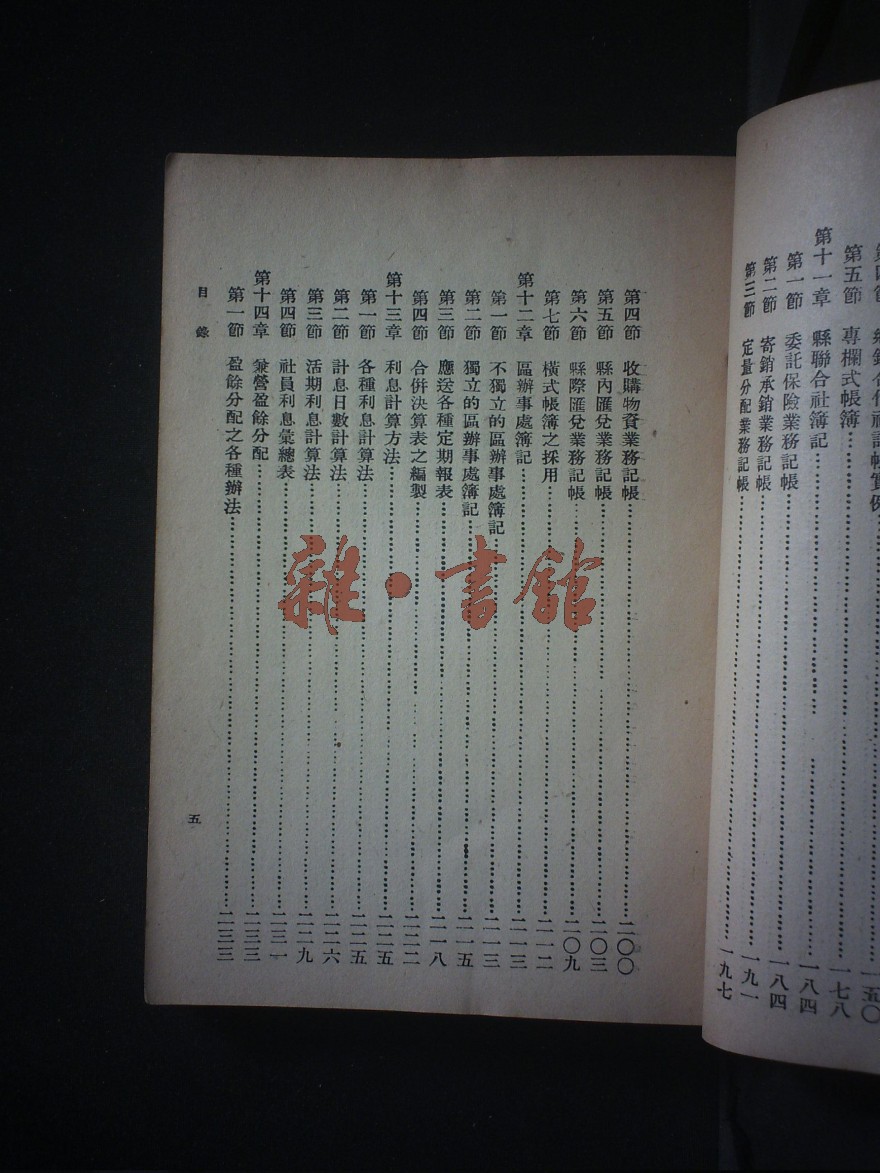 第五節　專欄式帳簿……一七八
第十一章　縣聯合社簿記……一八四
第一節　委託保險業務記帳……一八四
第二節　寄銷承銷業務記帳……一九一
第三節　定量分配業務記帳……一九七
第四節　收購物資業務記帳……二〇〇
第五節　縣內匯兌業務記帳……二〇三
第六節　縣際匯兌業務記帳……二〇九
第七節　橫式帳簿之採用……二一二
第十二章　區辦事處簿記……二一三
第一節　不獨立的區辦事處簿記……二一三
第二節　獨立的區辦事處簿記……二一五
第三節　應送各種定期報表……二一八
第四節　合併決算表之編製……二二二
第十三章　利息計算方法……二二五
第一節　各種利息計算法……二二五
第二節　計息日數計算法……二二六
第三節　活期利息計算法……二二九
第四節　社員利息彙總表……二三一
第十四章　兼營盈餘分配……二三三
第一節　盈餘分配之各種辦法……二三三
目錄
五
雜·書館